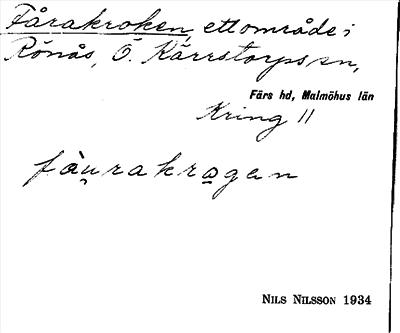 Fårakroken, ett område i
Rönås, Ö. Kärrstorps sn,
Färs hd, Malmöhus län
Kring 11
fàu̯rakrogen
NILS NILSSON 1934